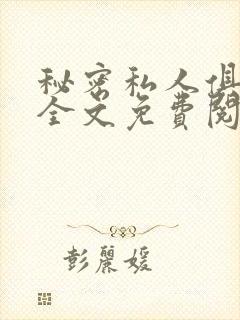 秘密私人俱
全文免費閱
彭麗媛